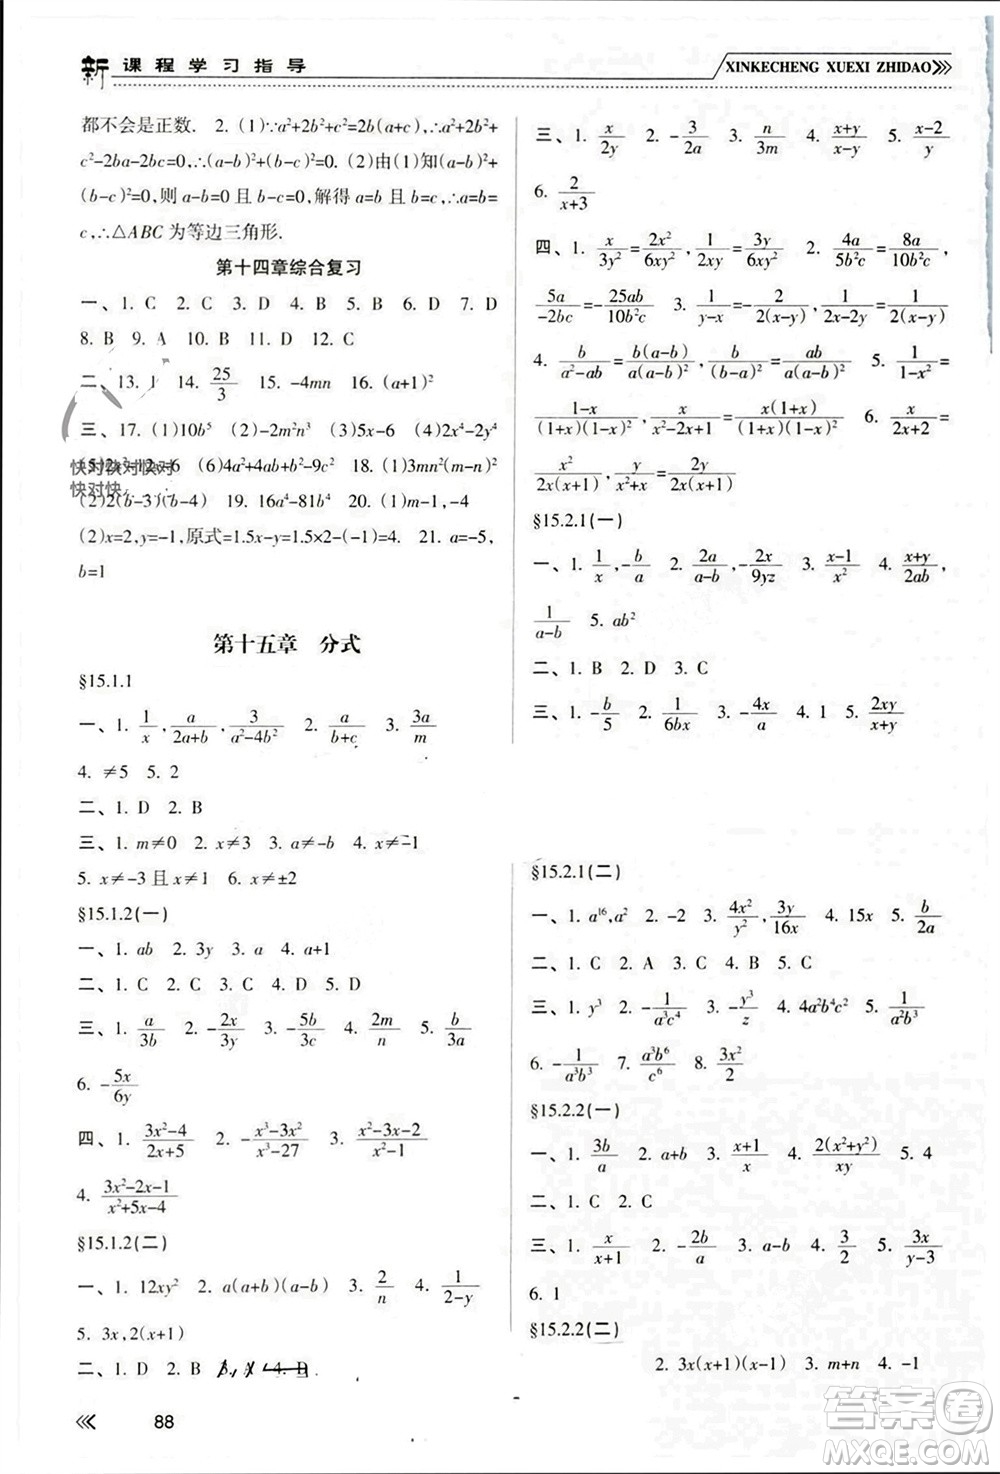 新课程学习指导
XINKECHENG XUEXI ZHIDAO
都不会是正数. 2. (1)∵a²+2b²+c²=2b(a+c),∴a²+2b²+
c²-2ba-2bc=0,∴(a-b)²+(b-c)²=0. (2)由(1)知(a-b)²+
(b-c)²=0,则 a-b=0 且 b-c=0,解得 a=b,b=c,∴a=b=
c,∴△ABC 为等边三角形.
第十四章综合复习
一、1. C 2. C 3. D 4. B 5. C 6. D 7. D
8. B 9. A 10. B 11. D 12. C
二、13. 1 14. 25/3 15. -4mn 16. (a+1)²
三、17. (1)10b⁵ (2)-2m²n² (3)5x-6 (4)2x⁴-2y⁴
(6)4a²+4ab+b²-9c² 18. (1)3mn²(m-n)
快对快对快对
快对快
(2)2(b-3)(b-4) 19. a⁴-81b⁴ 20. (1)a²+a,-4
(2)x=2,y=-1,原式=1.5x-y=1.5×2-(-1)=4. 21. a=-5,
b=1
第十五章 分式
§15.1.1
一、1. 1/x, a/(2a+b), 3/(a²-4b²) 2. a/(b+c) 3. 3a/m
4. ≠5 5. 2
二、1. D 2. B
三、1. m≠0 2. x≠3 3. a≠-b 4. x≠
5. x≠-3 且 x≠1 6. x≠±2
§15.1.2(一)
一、1. ab 2. 3y 3. a 4. a+1
二、1. C 2. C 3. C 4. D 5. D
三、1. a/3b 2. -2x/3y 3. -5b/3c 4. 2m/n 5. b/3a
6. -5x/6y
四、1. (3x²-4)/(2x+5) 2. -(x³-3x²)/(x³-27) 3. (x²-3x-2)/(x²-1)
4. (3x²-2x-1)/(x²+5x-4)
§15.1.2(二)
一、1. 12xy² 2. a(a+b)(a-b) 3. 2/n 4. 1/(2-y)
5. 3x,2(x+1)
二、1. D 2. B
88
三、1. x/2y 2. -3/2a 3. n/3m 4. (x+y)/(x-y) 5. (x-2)/y
6. 2/(x+3)
四、1. x/3y²=2x²/6xy², 1/2x=3y²/6xy² 2. 4a/5b²c=8a/10b²c,
5a/-2bc=-25ab/10b²c 3. 1/(y-x)=-2/2(x-y), 1/(2x-2y)=1/2(x-y)
4. b/(a²-ab)=b(a-b)/a(a-b)², b/(b-a)²=ab/a(a-b)² 5. 1/(1-x²)=
(1-x)/(1+x)(1-x)², x/(1-x)²=x(1+x)/(1+x)(1-x)² 6. x/(2x+2)=
x²/2x(x+1), y/(x²+x)=2y/2x(x+1)
§15.2.1(一)
一、1. 1/x,-b/a 2. 2a/(a-b),-2x/9yz 3. (x-1)/x² 4. (x+y)/2ab
1/(a-b) 5. ab²
二、1. B 2. D 3. C
三、1. -b/5 2. 1/6bx 3. -4x/a 4. 1 5. 2xy/(x+y)
§15.2.1(二)
一、1. a¹⁶,a² 2. -2 3. 4x²/y²,3y/16x 4. 15x 5. b/2a
二、1. C 2. A 3. C 4. B 5. C
三、1. y³ 2. -1/a³c⁴ 3. -y³/z 4. 4a²b⁴c² 5. 1/a²b³
6. -1/a³b³ 7. a³b⁶/c⁶ 8. 3x²/2
§15.2.2(一)
一、1. 3b/a 2. a+b 3. (x+1)/x 4. 2(x²+y²)/xy 5. 4
二、1. C 2. D 3. C
三、1. x/(x+1) 2. -2b/a 3. a-b 4. 3/2 5. 3x/(y-3)
6. 1
§15.2.2(二)
2. 3x(x+1)(x-1) 3. m+n 4. -1
答案圈
MXQE.COM